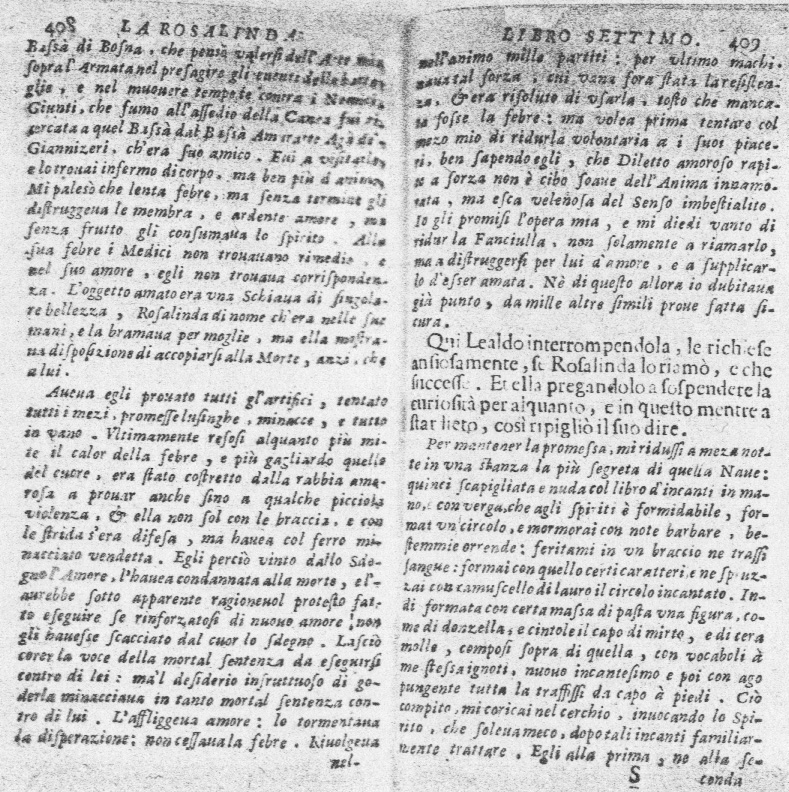 408 LA ROSALINDA.
Bassà di Bosna, che pensò valersi dell'Arte mia
sopra l'Armata nel presagire gli euenti delle batta-
glie, e nel muouere tempeste contra i Nemici.
Giunti, che fumo all'assedio della Canea fui ri-
cercata a quel Bassà dal Bassà Amuratte Agà di
Giannizeri, ch'era suo amico. Fui a visitarlo,
e lo trouai infermo di corpo, ma ben più d'animo.
Mi palesò che lenta febre, ma senza termine gli
distruggeua le membra, e ardente amore, ma
senza frutto gli consumaua lo spirito. Alla
sua febre i Medici non trouauano rimedio, e
nel suo amore, egli non trouaua corrisponden-
za. L'oggetto amato era vna Schiaua di singola-
re bellezza, Rosalinda di nome ch'era nelle sue
mani, e la bramaua per moglie, ma ella mostra-
ua disposizione di accopiarsi alla Morte, anzi, che
a lui.
Aueua egli prouato tutti gl'artifici, tentato
tutti i mezi, promesse lusinghe, minacce, e tutto
in vano. Vltimamente resosi alquanto più mi-
te il calor della febre, e più gagliardo quello
del cuore, era stato costretto dalla rabbia amo-
rosa a prouar anche sino a qualche picciola
violenza, & ella non sol con le braccia, e con
le strida s'era difesa, ma hauea col ferro mi-
nacciato vendetta. Egli perciò vinto dallo Sde-
gno l'Amore, l'hauea condannata alla morte, e l'-
aurebbe sotto apparente ragioneuol protesto fat-
to eseguire se rinforzatosi di nuouo amore non
gli hauesse scacciato dal cuor lo sdegno. Lasciò
correr la voce della mortal sentenza da eseguirsi
contro di lei: ma'l desiderio infruttuoso di go-
derla minacciaua in tanto mortal sentenza con-
tro di lui. L'affliggeua amore: lo tormentaua
la disperazione: non cessaua la febre. Riuolgeua
nel-
LIBRO SETTIMO. 409
nell'animo mille partiti: per vltimo machi-
naua tal forza, cui vana fora stata la resisten-
za, & era risoluto di vsarla, tosto che manca-
ta fosse la febre: ma volea prima tentare col
mezo mio di ridurla volontaria a i suoi piace-
ri, ben sapendo egli, che Diletto amoroso rapi-
to a forza non è cibo soaue dell'Anima innamo-
rata, ma esca velenosa del Senso imbestialito.
Io gli promisi l'opera mia, e mi diedi vanto di
ridur la Fanciulla, non solamente a riamarlo,
ma a distruggersi per lui d'amore, e a supplicar-
lo d'esser amata. Nè di questo allora io dubitaua
già punto, da mille altre simili proue fatta si-
cura.
Qui Lealdo interrompendola, le richiese
ansiosamente, se Rosalinda lo riamò, e che
successe. Et ella pregandolo a sospendere la
curiosità per alquanto, e in questo mentre a
star lieto, così ripigliò il suo dire.
Per mantener la promessa, mi ridussi a meza not-
te in vna stanza la più segreta di quella Naue:
quinci scapigliata e nuda col libro d'incanti in ma-
no, e con verga, che agli spiriti è formidabile, for-
mai vn'circolo, e mormorai con note barbare, be-
stemmie orrende: feritami in vn braccio ne trassi
sangue: formai con quello certi caratteri, e ne spruz-
zai con ramuscello di lauro il circolo incantato. In-
di formata con certa massa di pasta vna figura, co-
me di donzella, e cintole il capo di mirto, e di cera
molle, composi sopra di quella, con vocaboli à
me stessa ignoti, nuouo incantesimo e poi con ago
pungente tutta la traffissi da capo à piedi. Ciò
compito, mi coricai nel cerchio, inuocando lo Spi-
rito, che soleua meco, dopo tali incanti familiar-
mente trattare. Egli alla prima, ne alla se-
S conda